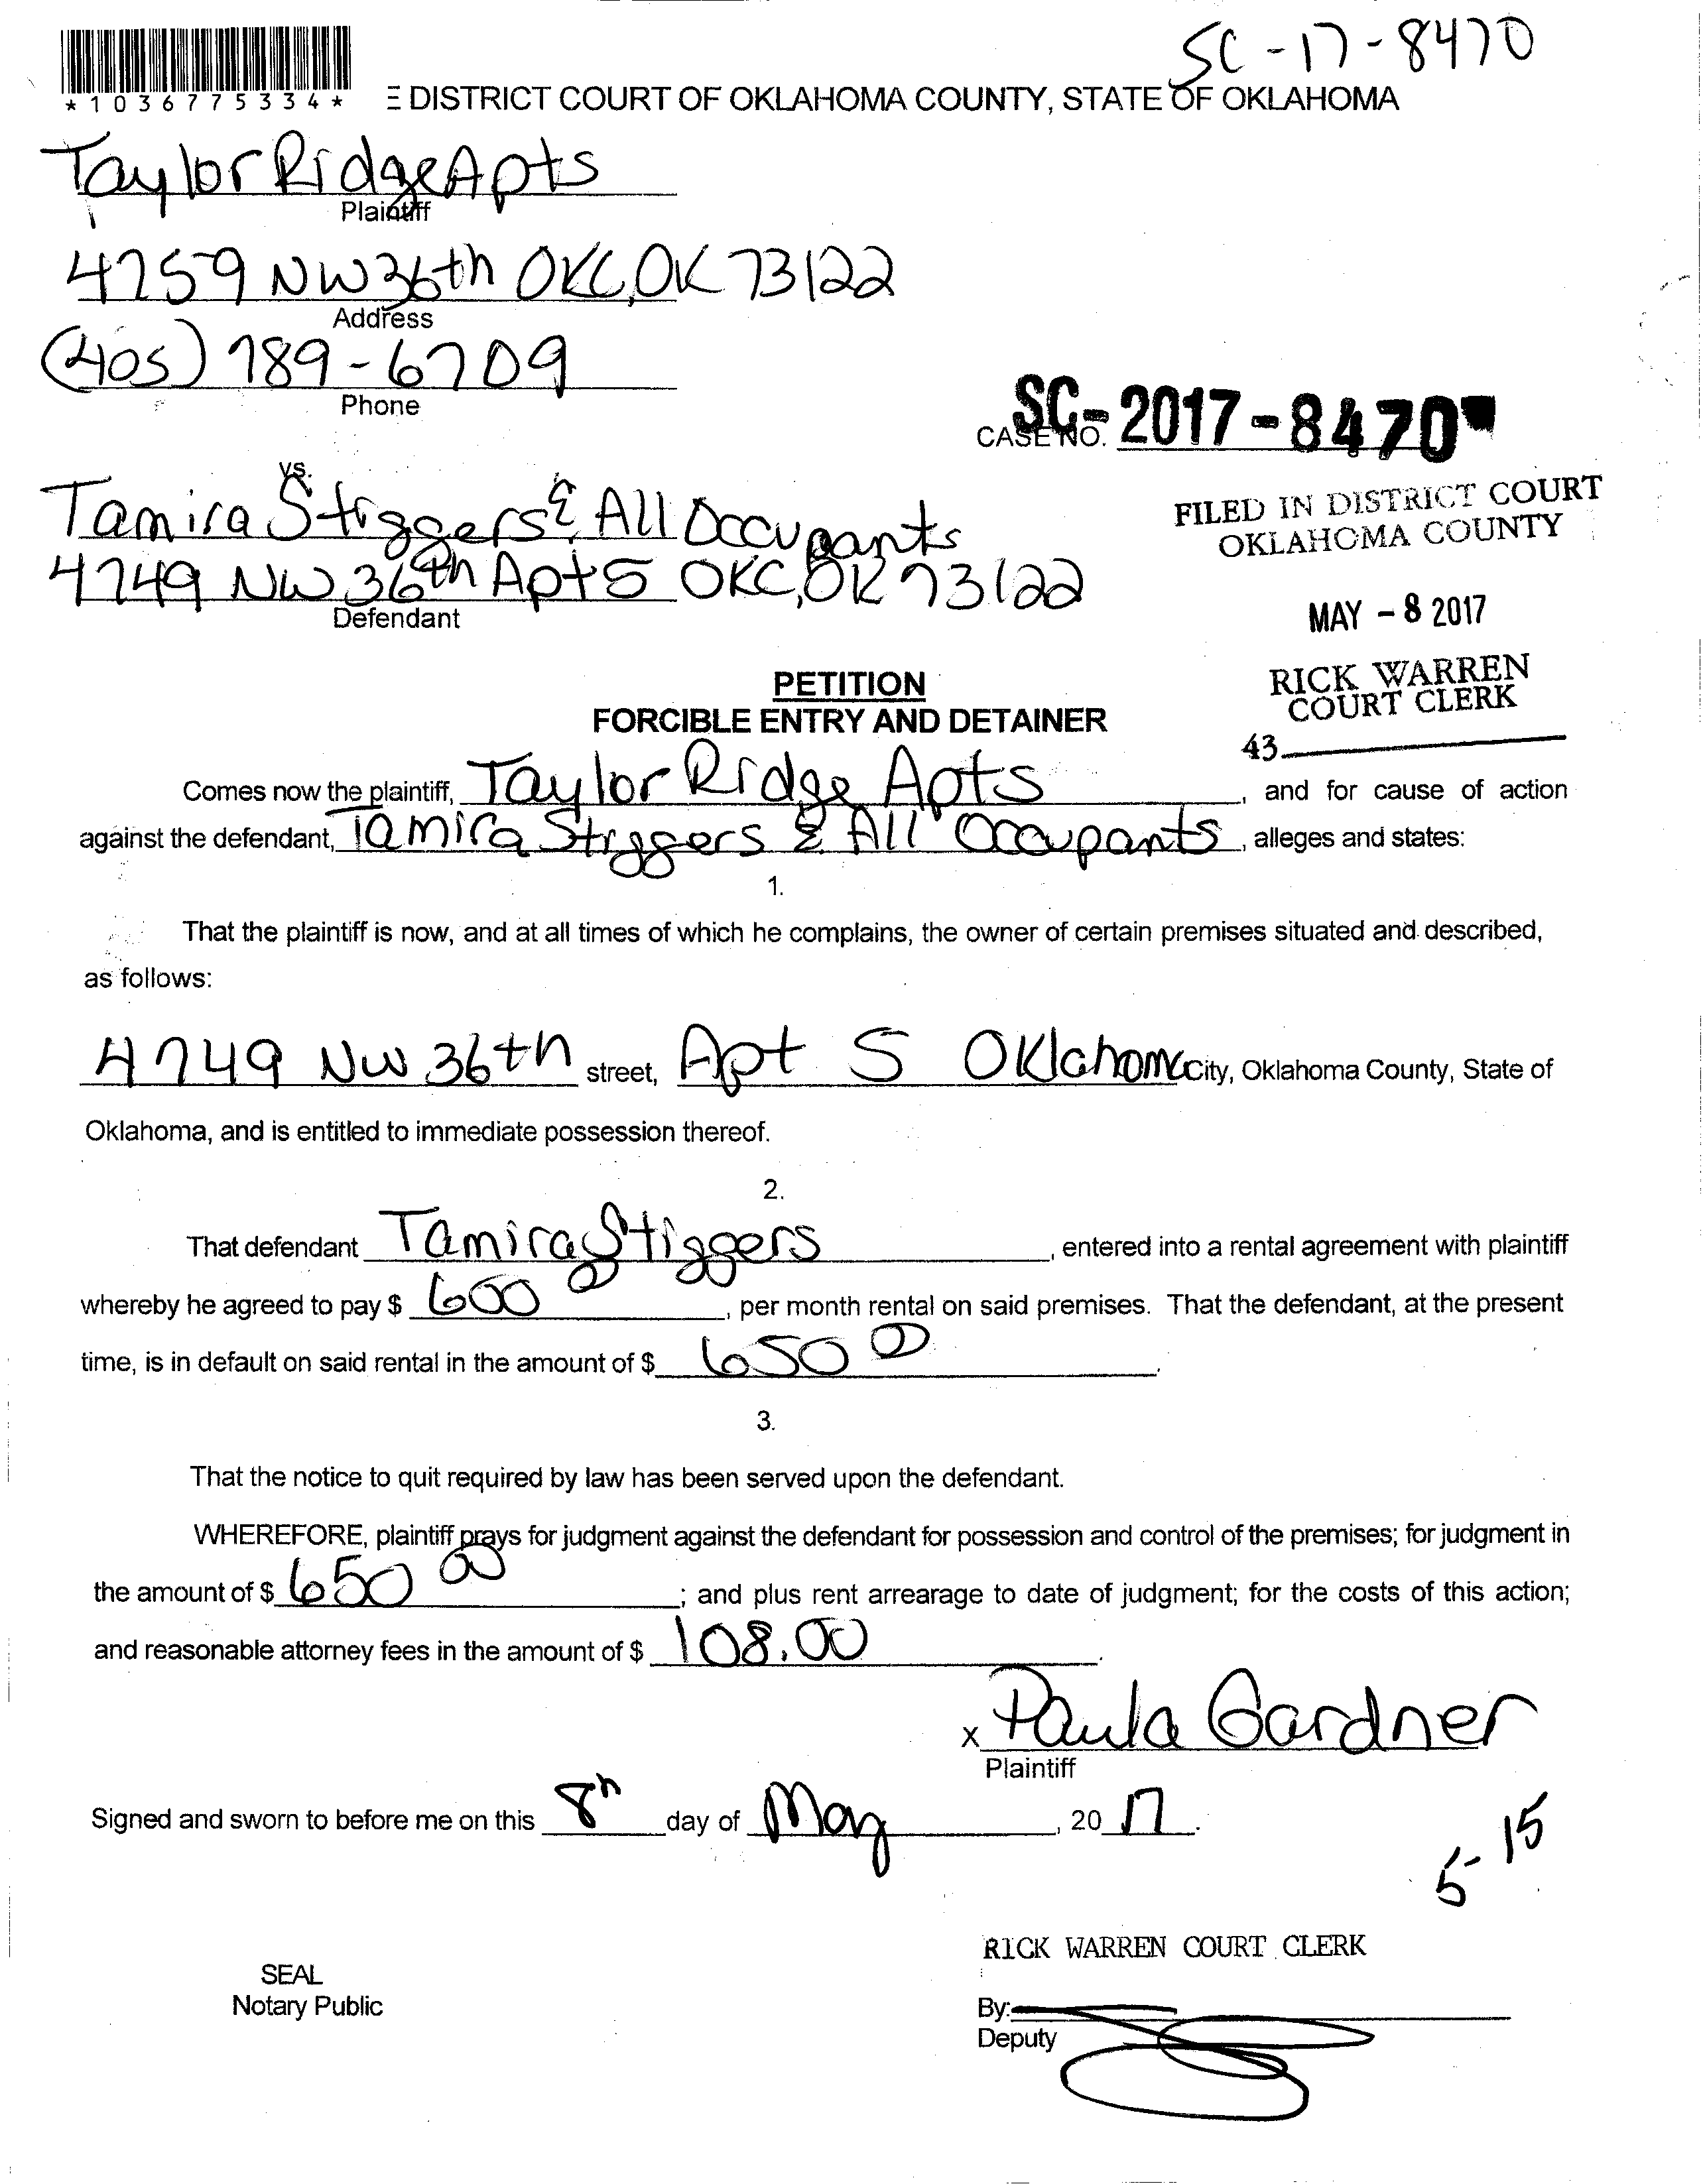 SC-17-8470
*1036775334*
E DISTRICT COURT OF OKLAHOMA COUNTY, STATE OF OKLAHOMA
Taylor Ridge Apts
Plaintiff
4759 NW 36th OKC, OK 73122
Address
(405) 789-6709
Phone
CASE NO. SC-2017-8470
vs.
Tamira Stiggers & All Occupants
4749 NW 36th Apt S OKC, OK 73122
Defendant
FILED IN DISTRICT COURT
OKLAHOMA COUNTY
MAY - 8 2017
RICK WARREN
COURT CLERK
43
PETITION
FORCIBLE ENTRY AND DETAINER
Comes now the plaintiff, Taylor Ridge Apts, and for cause of action
against the defendant, Tamira Stiggers & All Occupants, alleges and states:
1.
That the plaintiff is now, and at all times of which he complains, the owner of certain premises situated and described,
as follows:
4749 NW 36th street, Apt S Oklahoma City, Oklahoma County, State of
Oklahoma, and is entitled to immediate possession thereof.
2.
That defendant Tamira Stiggers, entered into a rental agreement with plaintiff
whereby he agreed to pay $ 600 00, per month rental on said premises. That the defendant, at the present
time, is in default on said rental in the amount of $ 650 00.
3.
That the notice to quit required by law has been served upon the defendant.
WHEREFORE, plaintiff prays for judgment against the defendant for possession and control of the premises; for judgment in
the amount of $ 650 00; and plus rent arrearage to date of judgment; for the costs of this action;
and reasonable attorney fees in the amount of $ 108.00.
x Paula Gardner
Plaintiff
Signed and sworn to before me on this 8th day of May, 20 17.
5-15
RICK WARREN COURT CLERK
SEAL
Notary Public
By:
Deputy